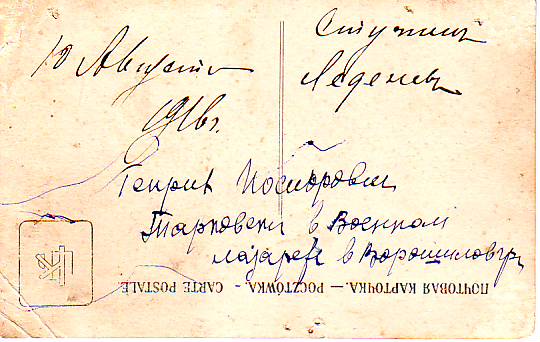 10 Августа
1916г.
Студент
Леденев
Генрик Иосифович
Тарковски в Военном
лазарете в Ворошиловгр
ПОЧТОВАЯ КАРТОЧКА. — POCZTÓWKA. - CARTE POSTALE